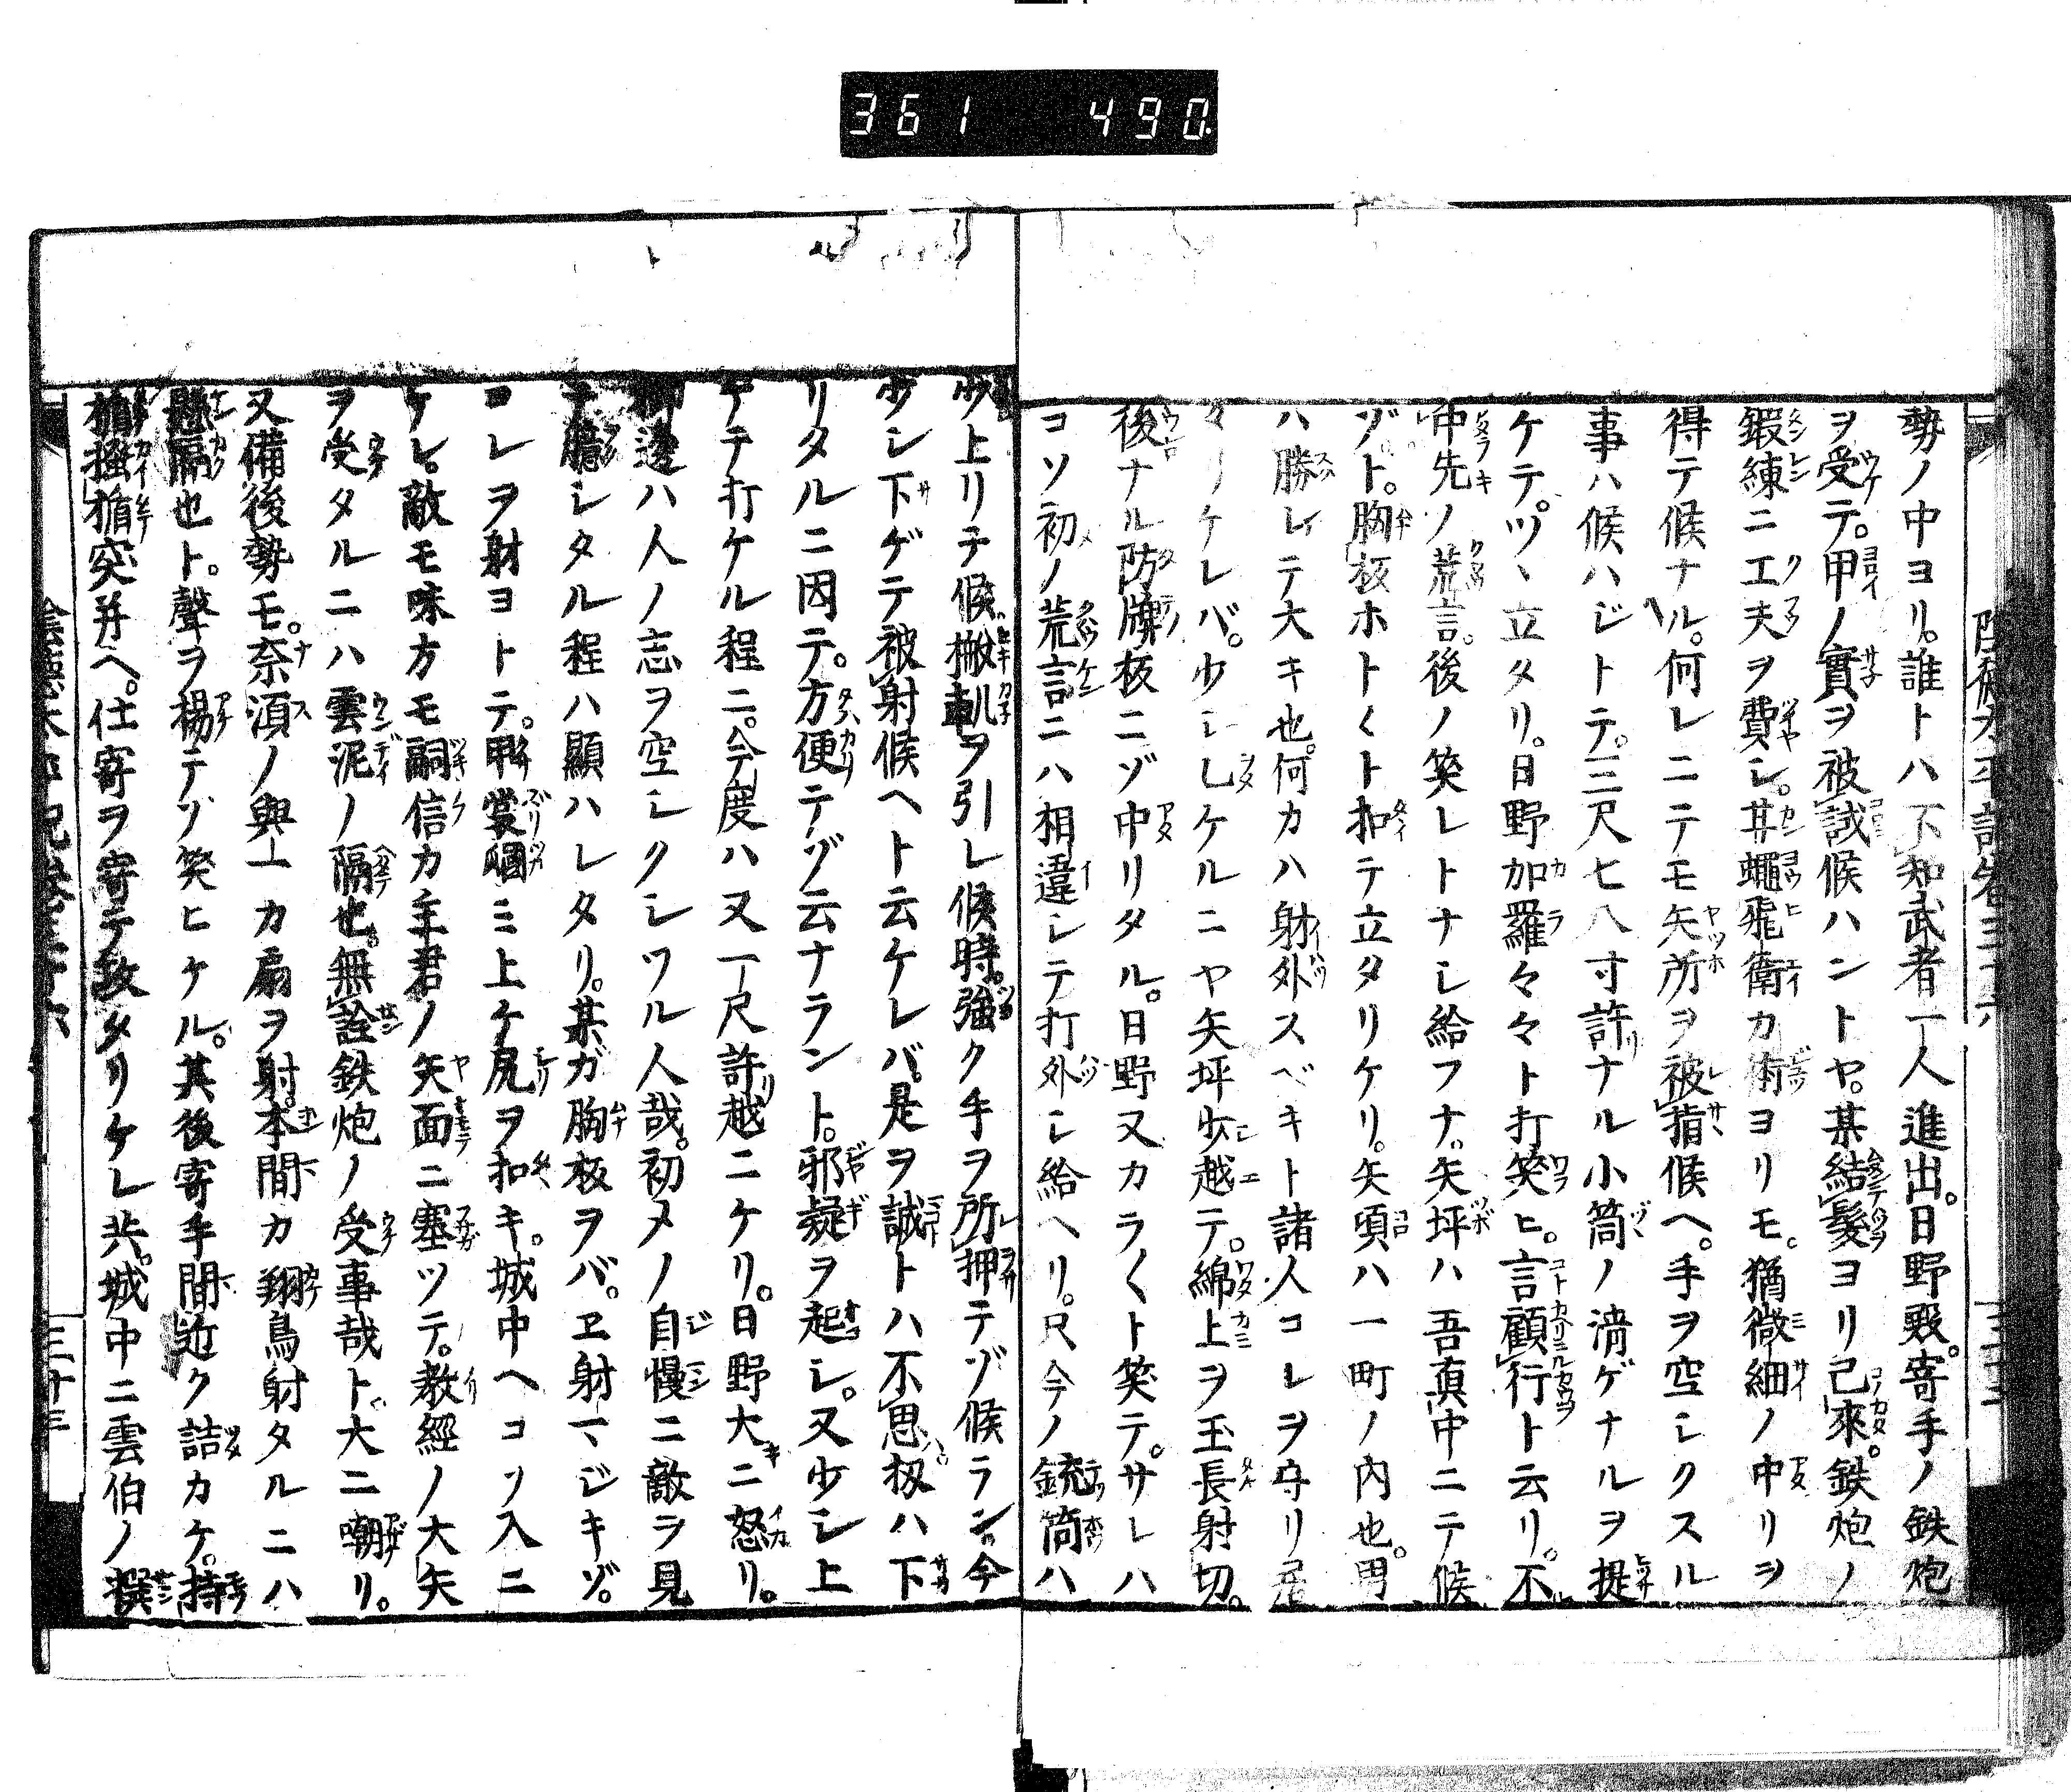 361 490
勢ノ中ヨリ。誰トハ不知武者一人進出。日野殿。寄手ノ鉄炮
ヲ受テ。甲ノ實ヲ被試候ハントヤ。某結髪ヨリ己來。鉄炮ノ
鍜練ニ工夫ヲ費シ。其蠅飛衛カ術ヨリモ。猶微細ノ中リヲ
得テ候ナル。何レニテモ矢所ヲ被指候ヘ。手ヲ空シクスル
事ハ候ハジトテ。三尺七八寸許ナル小筒ノ清ゲナルヲ提
ケテ。ツヽ立タリ。日野加羅々々ト打笑ヒ。言顧行ト云リ。不
中先ノ荒言。後ノ笑レトナシ給フナ。矢坪ハ吾真中ニテ候
ゾト。胸板ホトくト扣テ立タリケリ。矢頃ハ一町ノ内也。男
ハ勝レテ大キ也。何カハ射外スベキト諸人コレヲ守リ居
タリケレバ。少シシケルニヤ矢坪少越テ。綿上ヲ玉長射切。
後ナル防牌板ニゾ中リタル。日野又カラくト笑テ。サレハ
コソ初ノ荒言ニハ相違シテ打外シ給ヘリ。只今ノ銃筒ハ
少上リテ候。ヲ引レ候時。強ク手ヲ所押テゾ候ラン。今
少シ下ゲテ被射候ヘト云ケレバ。是ヲ誠トハ不思。扨ハ下
リタルニ因テ。方便テゾ云ナラント。邪疑ヲ起シ。又少シ上
ケテ打ケル程ニ。今度ハ又一尺許越ニケリ。日野大ニ怒リ。
御邊ハ人ノ志ヲ空シクシツル人哉。初メノ自慢ニ敵ヲ見
テ臆シタル程ハ顯ハレタリ。某ガ胸板ヲバ。ヱ射マジキゾ。
コレヲ射ヨトテ。甲裳ミ上ケ尻ヲ扣キ。城中ヘコソ入ニ
ケレ。敵モ味方モ嗣信カ主君ノ矢面ニ塞ツテ。教經ノ大矢
ヲ受タルニハ雲泥ノ隔也。無詮鉄炮ノ受事哉ト。大ニ嘲リ。
又備後勢モ。奈須ノ與一カ扇ヲ射。本間カ翔鳥射タルニハ
懸隔也ト。聲ヲ楊テゾ笑ヒケル。其後寄手間近ク詰カケ。持
楯掻楯突并ヘ。仕寄ヲ寄テ攻タリケレ共。城中ニ雲伯ノ撰